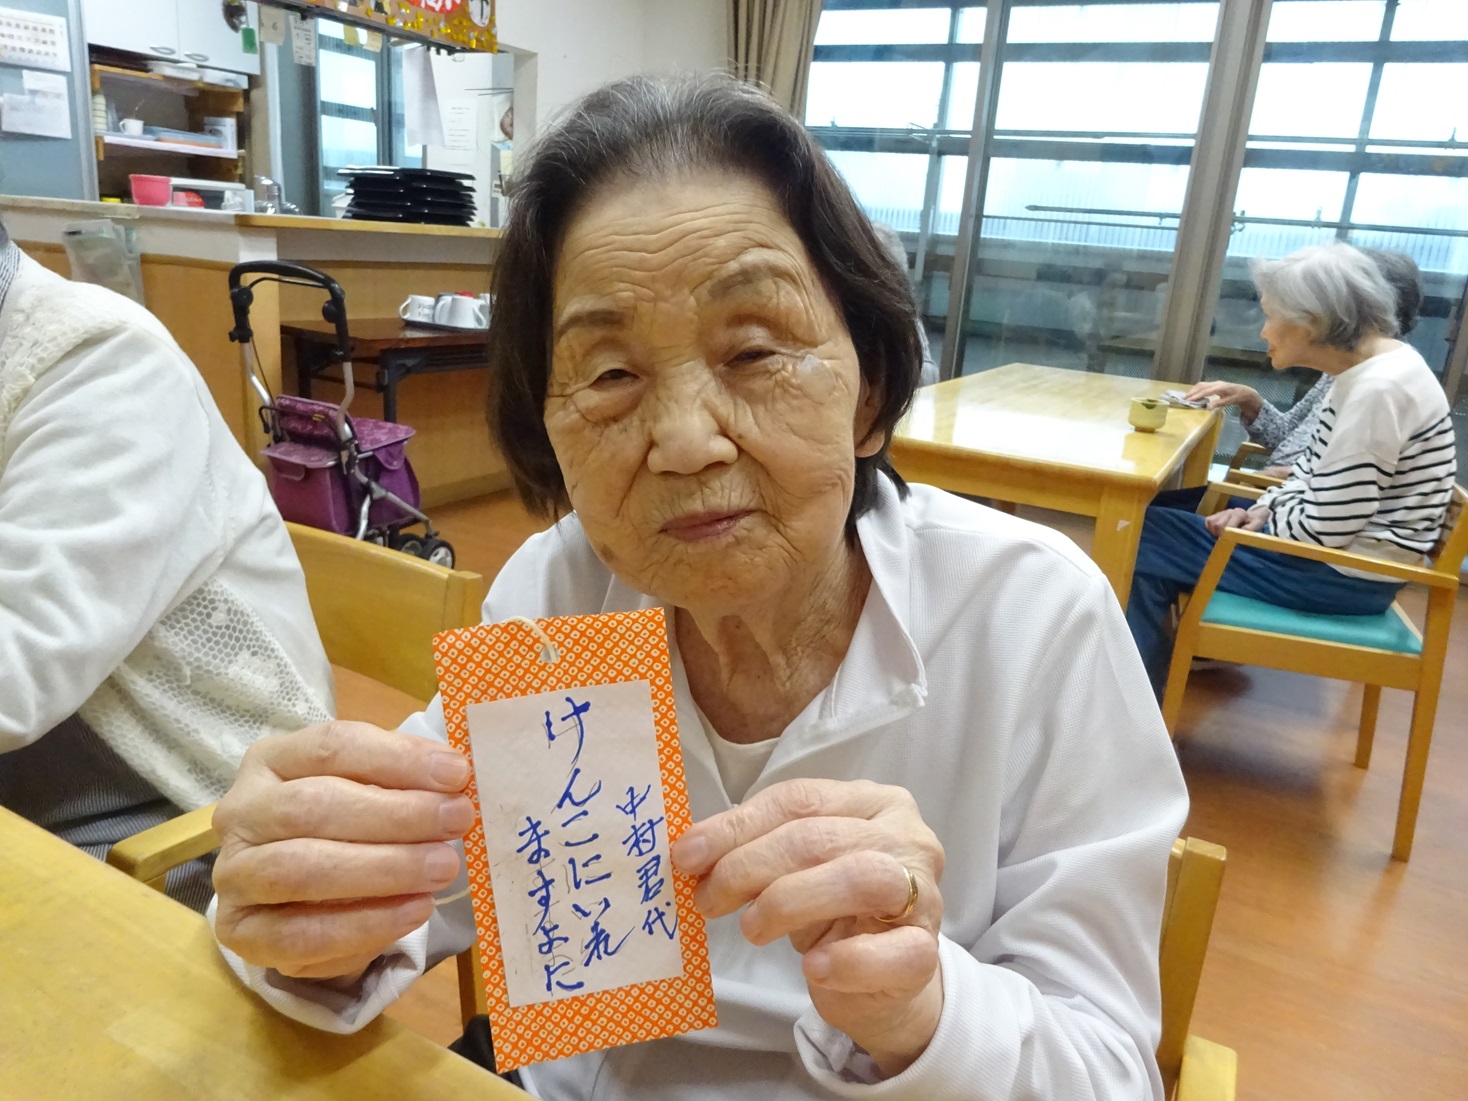 中村君代
けんこにいれ
ますよに